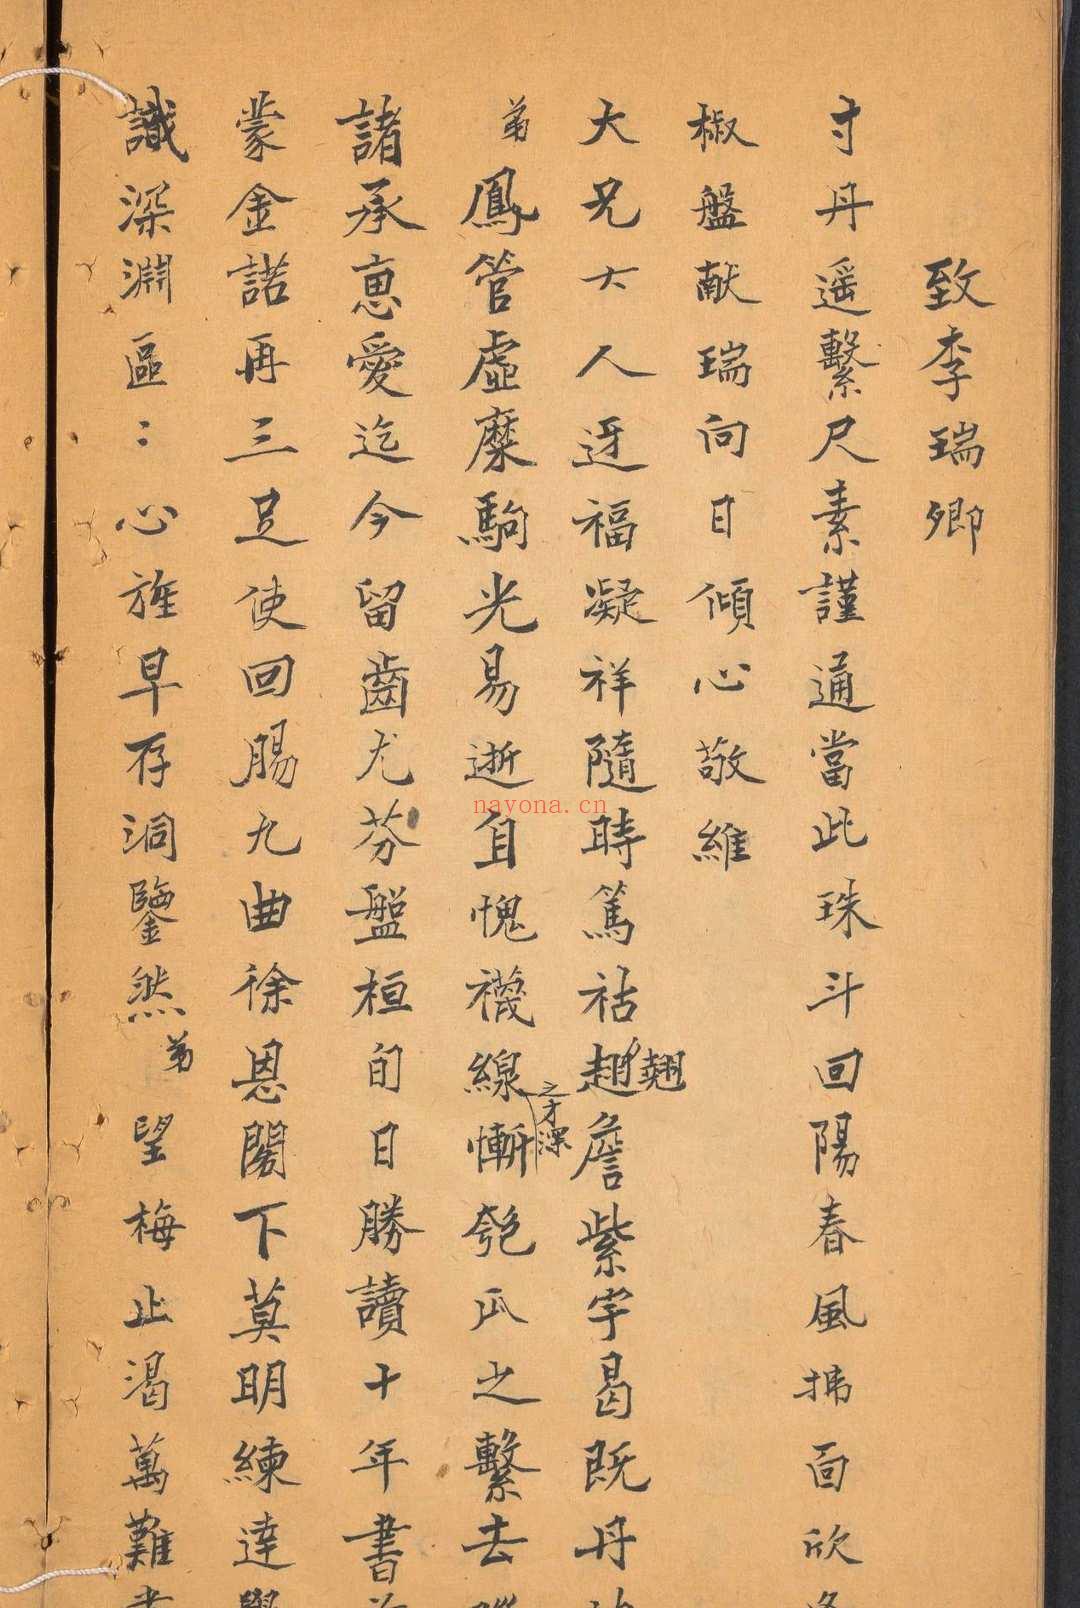 致李瑞卿
寸丹遥繫尺素謹通當此珠斗回陽春風拂面欣
椒盤献瑞向日傾心敬維
大兄大人迓福凝祥隨時篤祜翹詹紫宇曷既丹
翹
弟鳳管虛糜駒光易逝自愧襪線慚匏瓜之繫去
之才深
諸承恵愛迄今留齒尤芬盤桓旬日勝讀十年書
蒙金諾再三足使回腸九曲徐恩閣下莫明練達
識深淵區：心旌早存洞鑒然弟望梅止渴萬難
nayona.cn